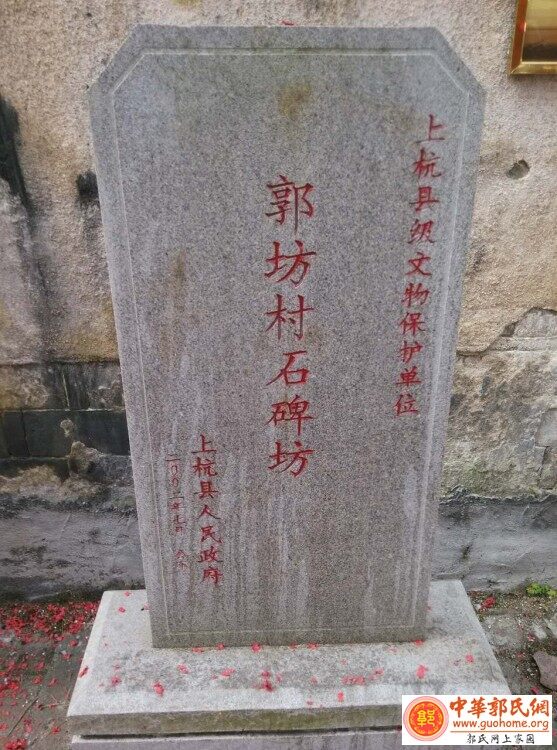 上杭县级文物保护单位
郭坊村石碑坊
上杭县人民政府
中華郭氏網
www.guohome.org
郭氏网上家园